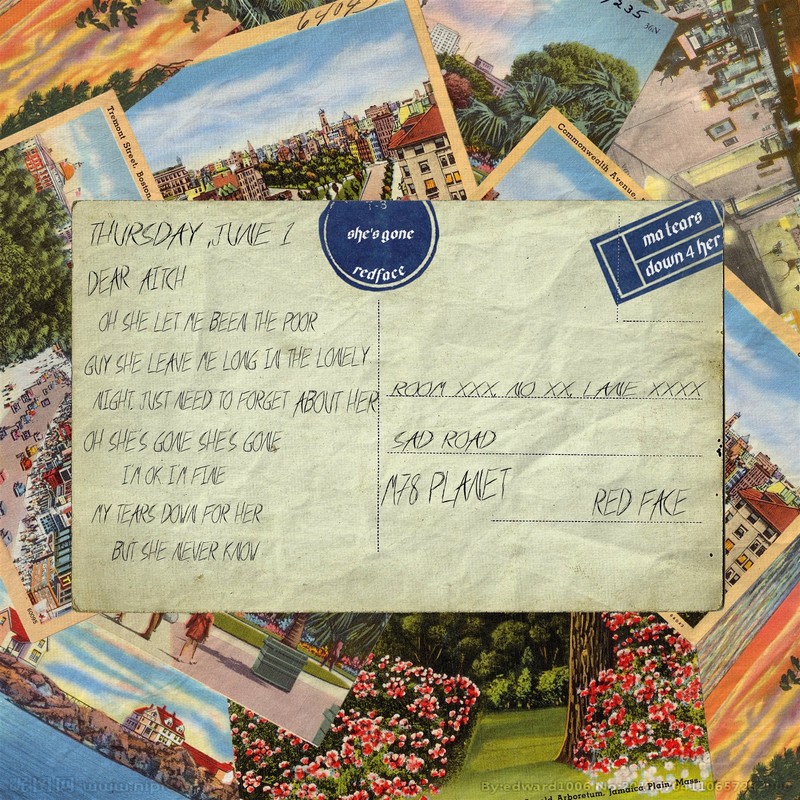 6404
7235
36N
Tremont Street, Boston,
Commonwealth Avenue,
THURSDAY ,JUNE 1
she's gone
redface
ma tears
down 4 her
DEAR AITCH
OH SHE LET ME BEEN THE POOR
GUY SHE LEAVE ME LONG IN THE LONELY
NIGHT JUST NEED TO FORGET ABOUT HER
OH SHE'S GONE SHE'S GONE
I'M OK I'M FINE
MY TEARS DOWN FOR HER
BUT SHE NEVER KNOW
ROOM XXX, NO XX, LANE XXXX
SAD ROAD
M78 PLANET
RED FACE
Arboretum, Jamaica Plain, Mass.
By:edward1006